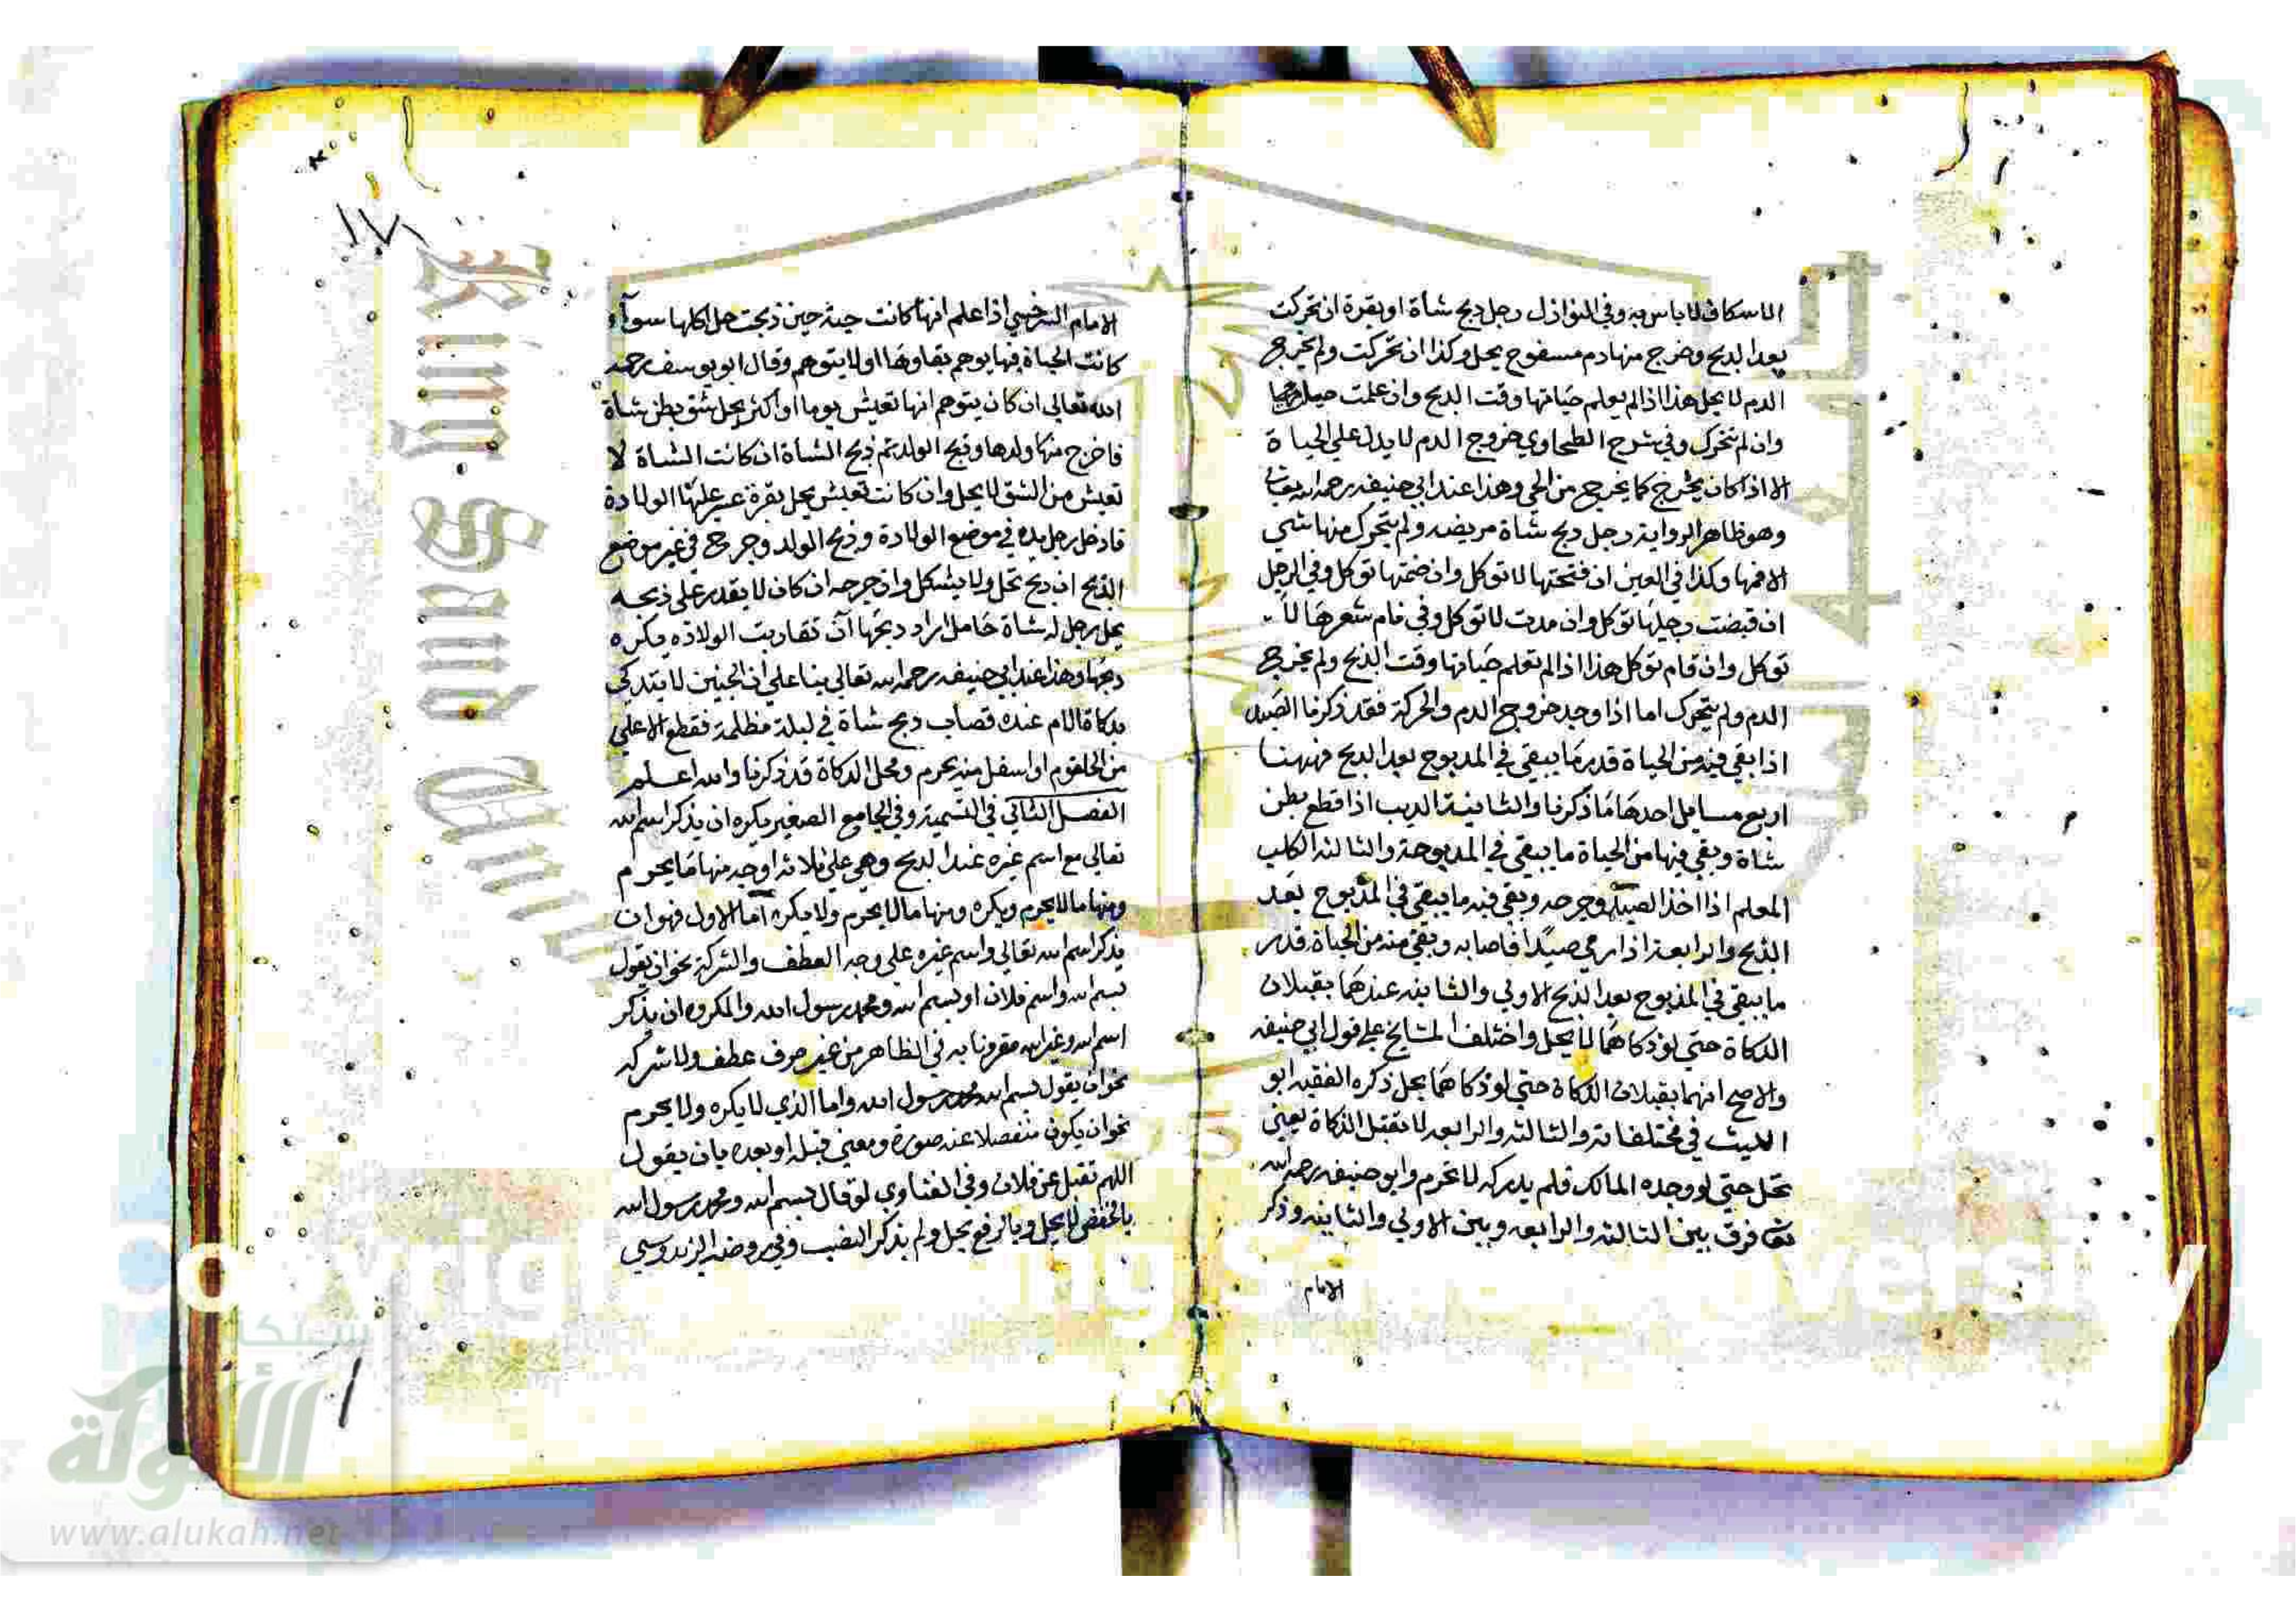 الاسكاف لا باس به وفي النوازل رجل ذبح شاة او بقرة ان تحركت
بعد الذبح وخرج منها دم مسفوح يحل وكذا ان تحركت ولم يخرج
الدم لا يحل هذا اذا لم يعلم حياتها وقت الذبح وان علمت
وان لم تتحرك وفي شرح الطحاوي خروج الدم لا يدل علي الحياة
الا اذا كان يخرج كما يخرج من الحي وهذا عند ابي حنيفه رحمه الله
وهو ظاهر الرواية رجل ذبح شاة مريضه ولم يتحرك منها شي
الا فمها وكذا في العين ان فتحتها لا توكل وان ضمتها توكل وفي الرجل
ان قبضت رجلها توكل وان مدت لا توكل وفي قام شعرها لا
توكل وان قام توكل هذا اذا لم تعلم حياتها وقت الذبح ولم يخرج
الدم ولم يتحرك اما اذا وجد خروج الدم والحركة فقد ذكرنا الصيد
اذا بقي فيه من الحياة قدر ما يبقي في المدبوح بعد الذبح فههنا
اربع مسايل احدها ما ذكرنا والثانية الديب اذا قطع بطن
شاة وبقي فيها من الحياة ما يبقي في المدبوحة والثالثه الكلب
المعلم اذا اخذ الصيد وجرحه وبقي فيه ما يبقي في المذبوح بعد
الذبح والرابعة اذا رمي صيدا فاصابه وبقي منه من الحياة قدر
ما يبقي في المذبوح بعد الذبح الاولي والثانيه عندهما يقبلان
الذكاة حتي لو ذكاهما لا يحل واختلف المشايخ علي قول ابي حنيفه
والاصح انهما يقبلان الذكاة حتي لو ذكاهما يحل ذكره الفقيه ابو
الليث في مختلفاته والثالثه والرابعه لا تقبل الذكاة يعني
تحل حتي لو وجده المالك فلم يدركه لا تحرم وابو حنيفه رحمه الله
فرق بين الثالثه والرابعه وبين الاولي والثانيه وذكر
الامام
١٧١
الامام السرخسي اذا علم انها كانت حية حين ذبحت حل اكلها سوآء
كانت الحياة فيها يوهم بقاوها او لا يتوهم وقال ابو يوسف رحمه
الله تعالي ان كان يتوهم انها تعيش يوما او اكثر يحل شق بطن شاة
فاخرج منها ولدها وذبح الولد ثم ذبح الشاة ان كانت الشاة لا
تعيش من الشق لا يحل وان كانت تعيش يحل بقرة عسر عليها الولادة
فادخل رجل يده في موضع الولادة وذبح الولد وجرح في غير موضع
الذبح ان ذبح تحل ولا يشكل وان جرحه ان كان لا يقدر علي ذبحه
يحل رجل له شاة حامل اراد ذبحها ان تقاربت الولاده يكره
ذبحها وهذا عند ابي حنيفه رحمه الله تعالي بنا علي ان الجنين لا يتذكي
بذكاة الام عنده قصاب ذبح شاة في ليلة مظلمة فقطع الاعلي
من الحلقوم او اسفل منه يحرم ومحل الذكاة قد ذكرنا والله اعلم
الفصل الثاني في التسمية وفي الجامع الصغير يكره ان يذكر اسم الله
تعالي مع اسم غيره عند الذبح وهي علي ثلاثه اوجه منها ما يحرم
ومنها ما لا يحرم ويكره ومنها ما لا يحرم ولا يكره اما الاول فهو ان
يذكر اسم الله تعالي واسم غيره علي وجه العطف والشركة نحو ان يقول
بسم الله واسم فلان او بسم الله ومحمد رسول الله والمكروه ان يذكر
اسم الله وغير الله مقرونا به في الظاهر من غير حرف عطف ولا شركه
نحو ان يقول بسم الله محمد رسول الله واما الذي لا يكره ولا يحرم
نحو ان يكون منفصلا عنه صورة ومعني قبله او بعده بان يقول
اللهم تقبل عن فلان وفي الفتاوي لو قال بسم الله ومحمد رسول الله
بالخفض لا يحل وبالرفع يحل ولم يذكر النصب وفي روضه الزندوسي
شبكة
الألوكة
www.alukah.net